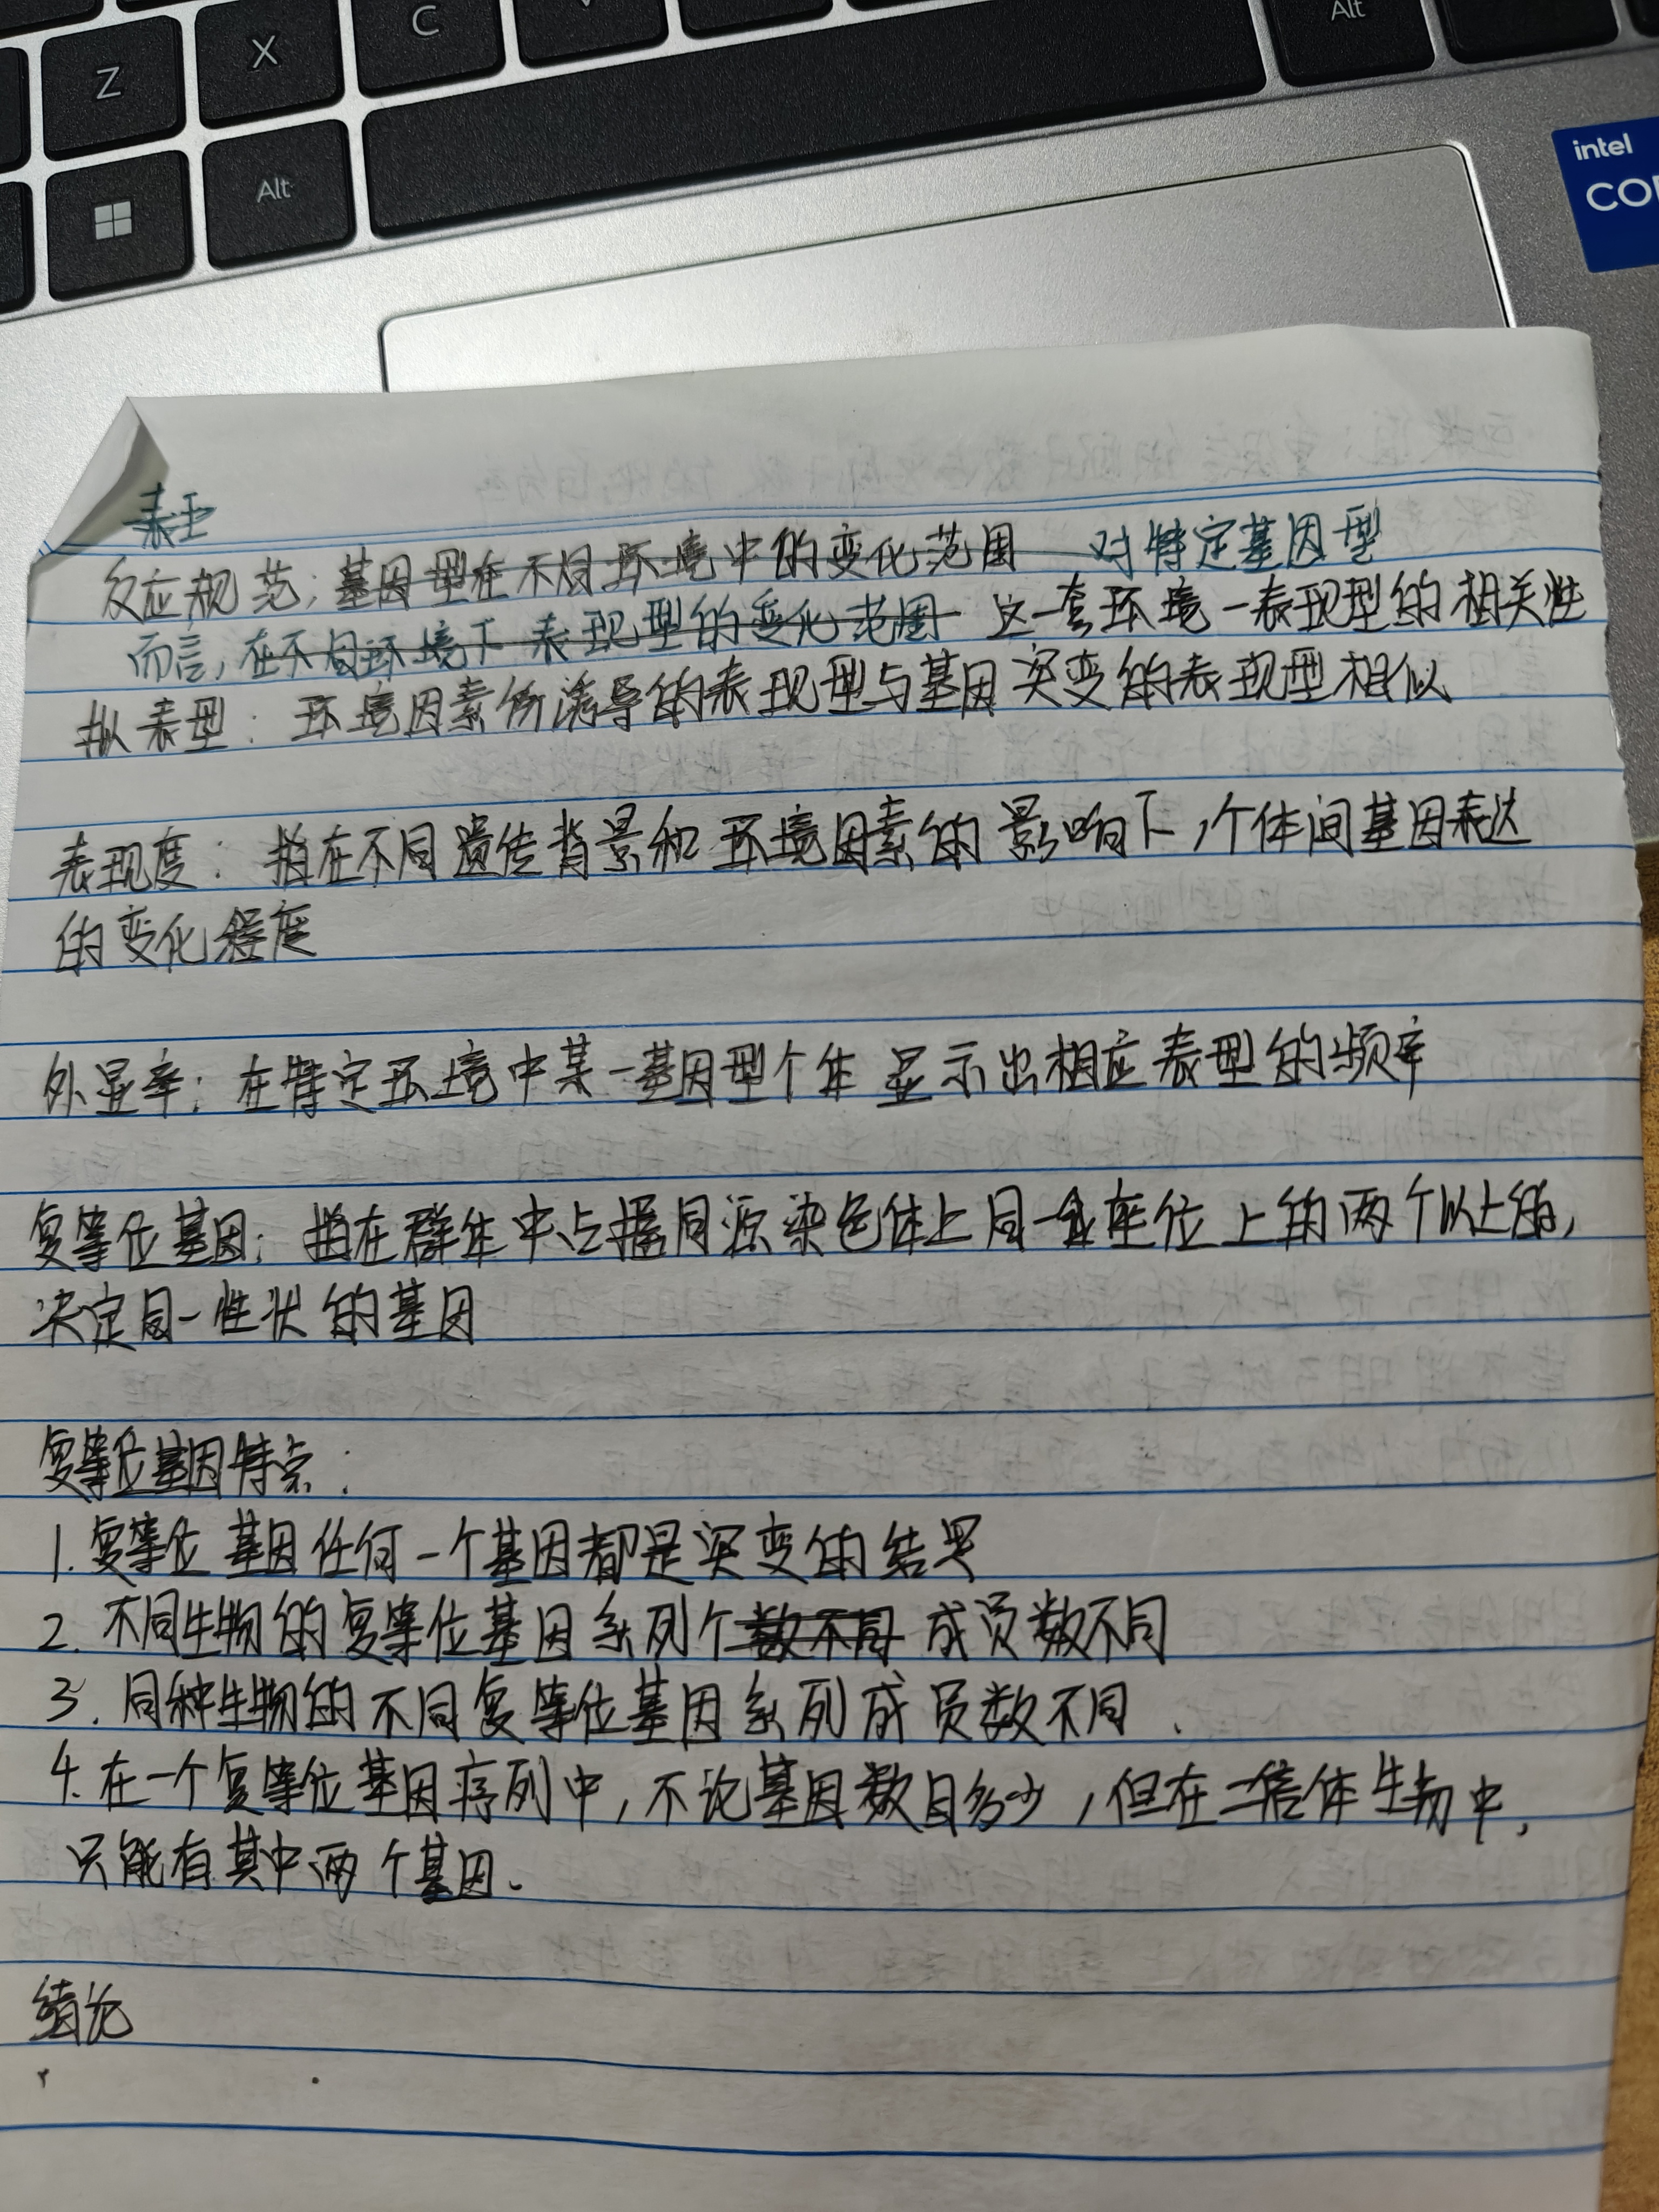 Z X C Alt
Alt
intel
反应规范：基因型在不同环境中的变化范围 对特定基因型
而言，在不同环境下表现型的变化范围 这一套环境一表现型的相关性
拟表型：环境因素所诱导的表现型与基因突变的表现型相似
表现度：指在不同遗传背景和环境因素的影响下，个体间基因表达
的变化程度
外显率：在特定环境中某一基因型个体显示出相应表型的频率
复等位基因：指在群体中占据同源染色体上同一座位上的两个以上的，
决定同一性状的基因
复等位基因特点：
1.复等位基因任何一个基因都是突变的结果
2.不同生物的复等位基因系列个数不同 成员数不同
3.同种生物的不同复等位基因系列成员数不同.
4.在一个复等位基因序列中，不论基因数目多少，但在二倍体生物中，
只能有其中两个基因.
结论